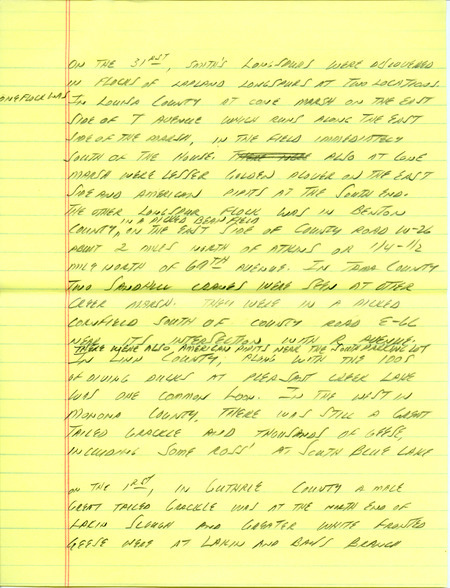 ON THE 31RST, SMITH'S LONGSPURS WERE DISCOVERED
IN FLOCKS OF LAPLAND LONGSPURS AT TWO LOCATIONS.
ONE FLOCK WAS
IN LOUISA COUNTY AT CONE MARSH ON THE EAST
SIDE OF T AVENUE WHICH RUNS ALONG THE EAST
SIDE OF THE MARSH, IN THE FIELD IMMEDIATELY
SOUTH OF THE HOUSE. ALSO AT CONE
MARSH WERE LESSER GOLDEN PLOVER ON THE EAST
SIDE AND AMERICAN PIPITS AT THE SOUTH END.
THE OTHER LONGSPUR FLOCK WAS IN BENTON
IN A PICKED BEAN FIELD
COUNTY, ON THE EAST SIDE OF COUNTY ROAD W-26
ABOUT 2 MILES NORTH OF ATKINS OR 1/4-1/2
MILE NORTH OF 69TH AVENUE. IN TAMA COUNTY
TWO SANDHILL CRANES WERE SEEN AT OTTER
CREEK MARSH. THEY WERE IN A PICKED
CORNFIELD SOUTH OF COUNTY ROAD E-66
NEAR ITS INTERSECTION WITH R AVENUE.
THERE WERE ALSO AMERICAN PIPITS NEAR THE SOUTH PARKING LOT
IN LINN COUNTY, ALONG WITH THE 100S
OF DIVING DUCKS AT PLEASANT CREEK LAKE
WAS ONE COMMON LOON. IN THE WEST IN
MONONA COUNTY, THERE WAS STILL A GREAT
TAILED GRACKLE AND THOUSANDS OF GEESE,
INCLUDING SOME ROSS' AT SOUTH BLUE LAKE
ON THE 1RST, IN GUTHRIE COUNTY A MALE
GREAT TAILED GRACKLE WAS AT THE NORTH END OF
LAKIN SLOUGH AND GREATER WHITE FRONTED
GEESE WERE AT LAKIN AND BAYS BRANCH